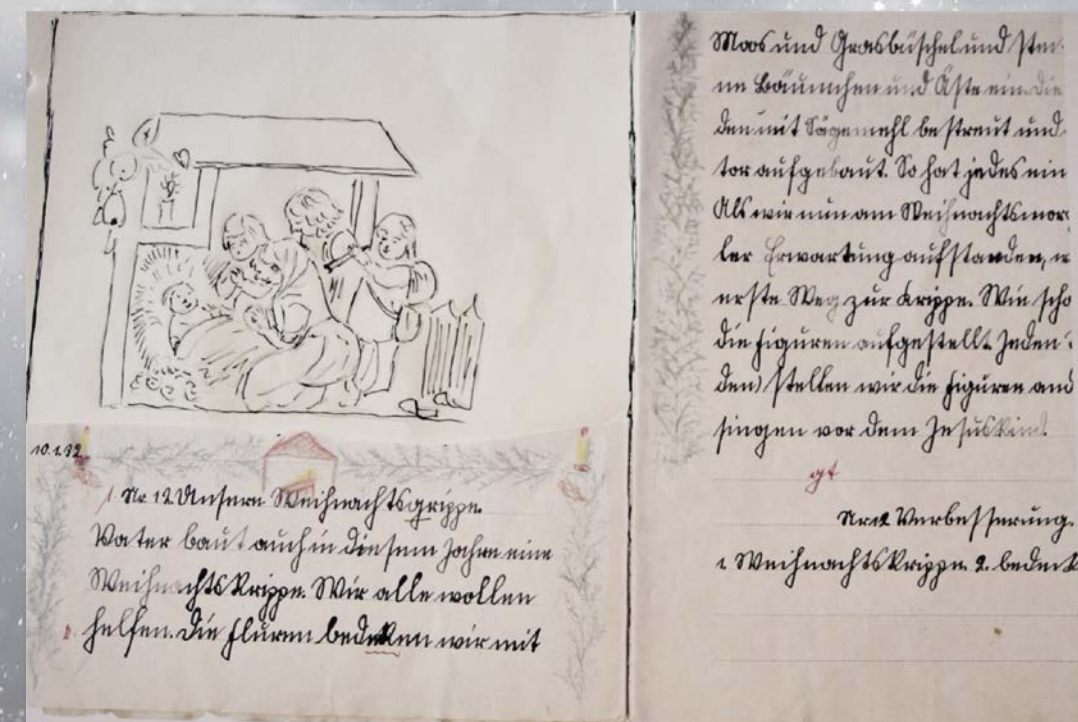 10.1.32
1 Nr. 12 Unsere Weihnachtsgrippe.
Vater baut auch in diesem Jahre eine
Weihnachtskrippe. Wir alle wollen
2. helfen. Die Fluren bedeken wir mit
Moos und Grasbüschel und stek-
en Bäumchen und Äste ein. Die
den mit Sägemehl bestreut und
tor aufgebaut. So hat jedes ein
Als wir nun am Weihnachtsmor
ler Erwartung aufstanden, w
erste Weg zur Krippe. Wie schö
die Figuren aufgestellt. Jeden
den) stellen wir die Figuren and
singen vor dem Jesuskind.
gt
Nr. 12 Verbesserung.
1. Weihnachtskrippe. 2. bedeck